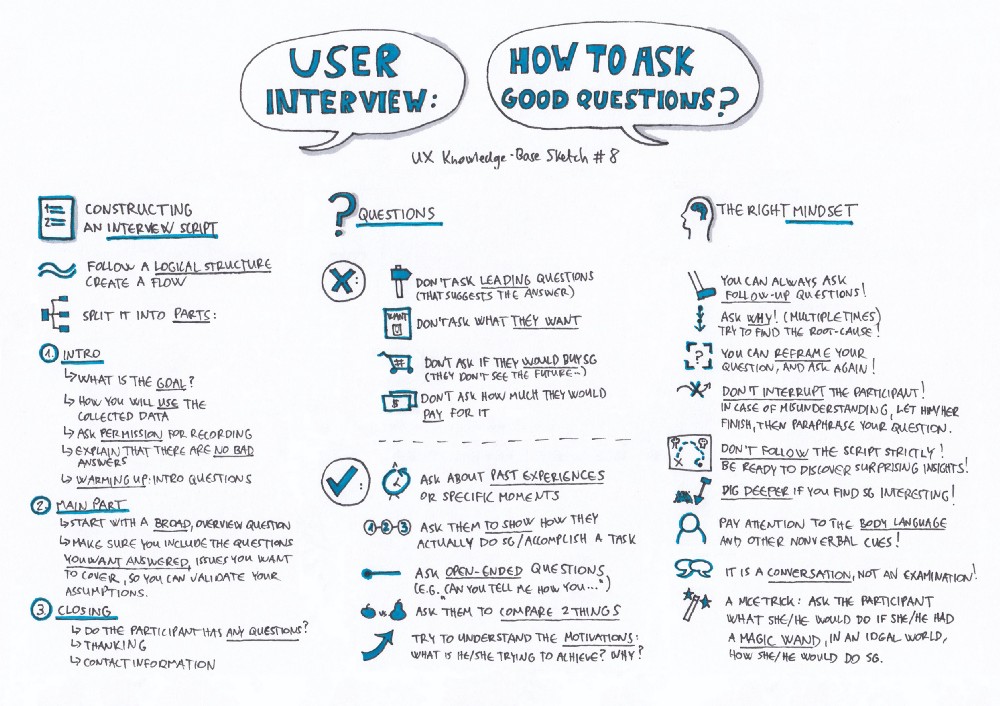 USER
INTERVIEW:
HOW TO ASK
GOOD QUESTIONS?
UX Knowledge-Base Sketch #8
1
2
CONSTRUCTING
AN INTERVIEW SCRIPT
FOLLOW A LOGICAL STRUCTURE
CREATE A FLOW
SPLIT IT INTO PARTS:
1. INTRO
↳ WHAT IS THE GOAL?
↳ HOW YOU WILL USE THE
COLLECTED DATA
↳ ASK PERMISSION FOR RECORDING
↳ EXPLAIN THAT THERE ARE NO BAD
ANSWERS
↳ WARMING UP: INTRO QUESTIONS
2. MAIN PART
↳ START WITH A BROAD, OVERVIEW QUESTION
↳ MAKE SURE YOU INCLUDE THE QUESTIONS
YOU WANT ANSWERED, ISSUES YOU WANT
TO COVER, SO YOU CAN VALIDATE YOUR
ASSUMPTIONS.
3. CLOSING
↳ DO THE PARTICIPANT HAS ANY QUESTIONS?
↳ THANKING
↳ CONTACT INFORMATION
? QUESTIONS
X:
DON'T ASK LEADING QUESTIONS
(THAT SUGGESTS THE ANSWER)
WANTED
DON'T ASK WHAT THEY WANT
#
DON'T ASK IF THEY WOULD BUY SG
(THEY DON'T SEE THE FUTURE...)
$
DON'T ASK HOW MUCH THEY WOULD
PAY FOR IT
:
ASK ABOUT PAST EXPERIENCES
OR SPECIFIC MOMENTS
1-2-3
ASK THEM TO SHOW HOW THEY
ACTUALLY DO SG/ACCOMPLISH A TASK
ASK OPEN-ENDED QUESTIONS
(E.G. "CAN YOU TELL ME HOW YOU...")
VS.
ASK THEM TO COMPARE 2 THINGS
TRY TO UNDERSTAND THE MOTIVATIONS:
WHAT IS HE/SHE TRYING TO ACHIEVE? WHY?
THE RIGHT MINDSET
YOU CAN ALWAYS ASK
FOLLOW-UP QUESTIONS!
ASK WHY! (MULTIPLE TIMES)
TRY TO FIND THE ROOT-CAUSE!
?
YOU CAN REFRAME YOUR
QUESTION, AND ASK AGAIN!
DON'T INTERRUPT THE PARTICIPANT!
IN CASE OF MISUNDERSTANDING, LET HIM/HER
FINISH, THEN PARAPHRASE YOUR QUESTION.
DON'T FOLLOW THE SCRIPT STRICTLY!
BE READY TO DISCOVER SURPRISING INSIGHTS!
DIG DEEPER IF YOU FIND SG INTERESTING!
PAY ATTENTION TO THE BODY LANGUAGE
AND OTHER NONVERBAL CUES!
IT IS A CONVERSATION, NOT AN EXAMINATION!
A NICE TRICK: ASK THE PARTICIPANT
WHAT SHE/HE WOULD DO IF SHE/HE HAD
A MAGIC WAND, IN AN IDEAL WORLD,
HOW SHE/HE WOULD DO SG.